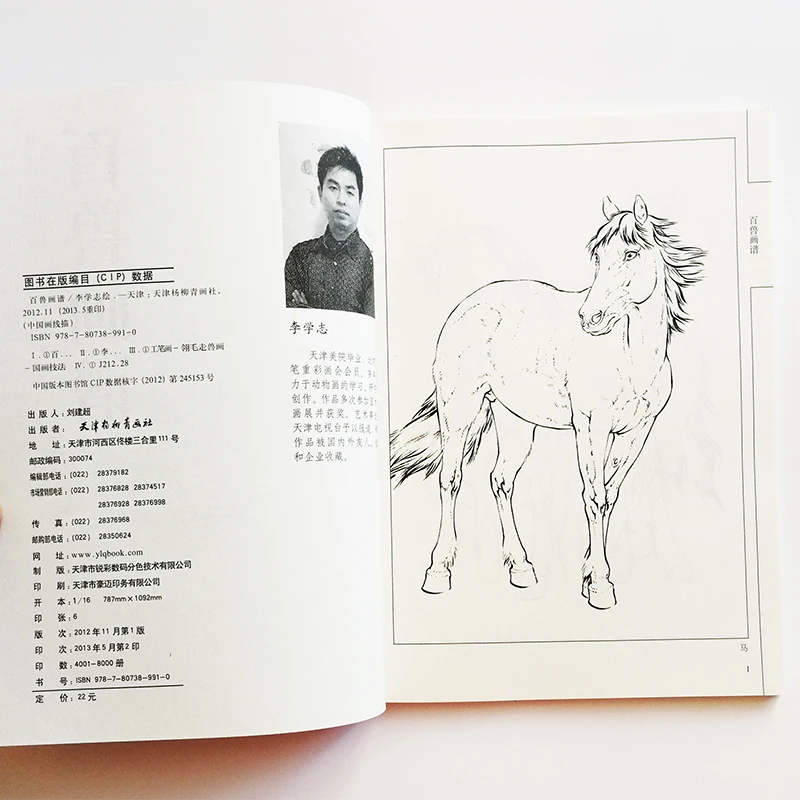 图书在版编目(CIP)数据
百兽画谱/李学志绘.—天津:天津杨柳青画社,
2012.11(2013.5重印)
(中国画线描)
ISBN 978-7-80738-991-0
Ⅰ.①百… Ⅱ.①李… Ⅲ.①工笔画-翎毛走兽画
-国画技法 Ⅳ.①J212.28
中国版本图书馆CIP数据核字(2012)第245153号
出版人:刘建超
出版者:天津杨柳青画社
地址:天津市河西区佟楼三合里111号
邮政编码:300074
编辑部电话:(022) 28379182
市场营销部电话:(022) 28376828 28374517
28376928 28376998
传真:(022) 28376968
邮购部电话:(022) 28350624
网址:www.ylqbook.com
制版:天津市锐彩数码分色技术有限公司
印刷:天津市豪迈印务有限公司
开本:1/16 787mm×1092mm
印张:6
版次:2012年11月第1版
印次:2013年5月第2印
印数:4001-8000册
书号:ISBN 978-7-80738-991-0
定价:22元
李学志
天津美院毕业,
笔重彩画会会员,
力于动物画的学习,
创作。作品多次参加
画展并获奖。艺术
天津电视台予以报道,
作品被国内外友人、
和企业收藏。
百兽画谱
马
1